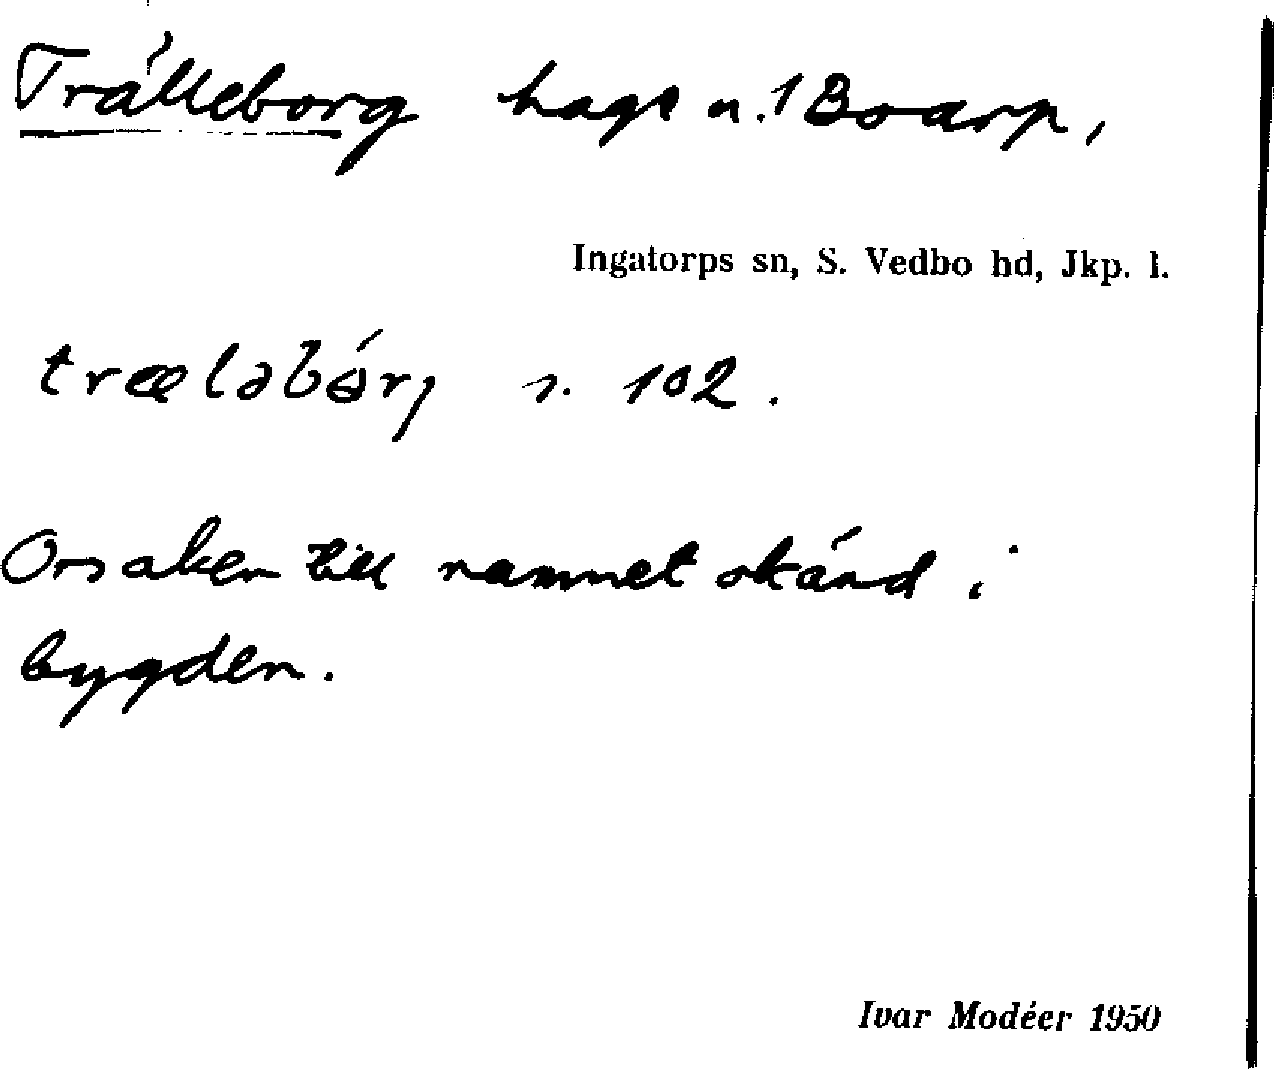 Trälleborg hage u. 1 Boarp,
Ingatorps sn, S. Vedbo hd, Jkp. l.
træləbórj s. 102.
Orsaken till namnet okänd i
bygden.
Ivar Modéer 1950